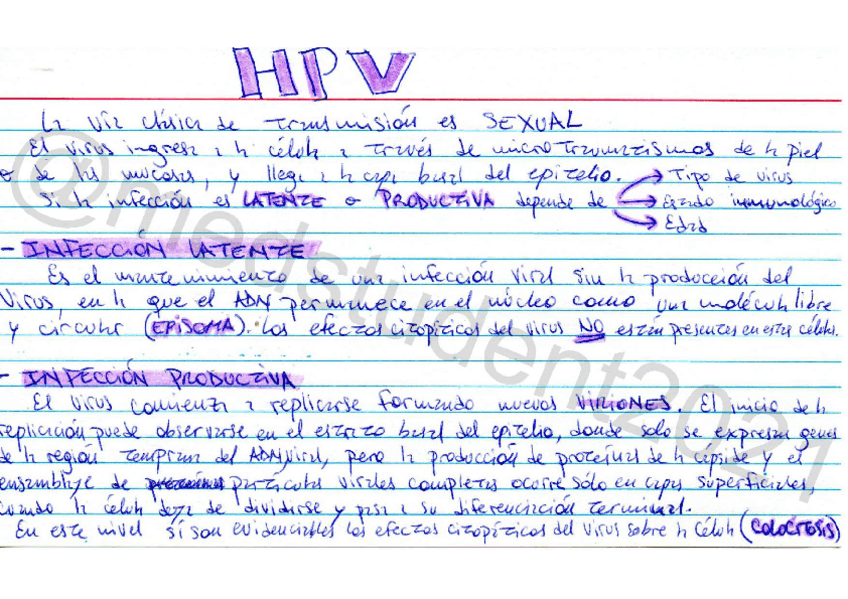 HPV
La vía clásica de transmisión es SEXUAL
El virus ingresa a la célula a través de microtraumatismos de la piel
o de las mucosas, y llega a la capa basal del epitelio. → Tipo de virus
Si la infección es LATENTE o PRODUCTIVA depende de → Estado inmunológico
→ Edad
- INFECCIÓN LATENTE
Es el mantenimiento de una infección viral sin la producción del
Virus, en la que el ADN permanece en el núcleo como una molécula libre
y circular (EPISOMA). Los efectos citopáticos del virus NO están presentes en estas células.
- INFECCIÓN PRODUCTIVA
El virus comienza a replicarse formando nuevos VIRIONES. El inicio de la
replicación puede observarse en el estrato basal del epitelio, donde solo se expresan genes
de la región temprana del ADN viral, pero la producción de proteínas de la cápside y el
ensamblaje de partículas virales completas ocurre sólo en capas superficiales,
cuando la célula deja de dividirse y pasa a su diferenciación terminal.
En este nivel sí son evidenciables los efectos citopáticos del virus sobre la célula (COLOCITOSIS)
@medstudent2021